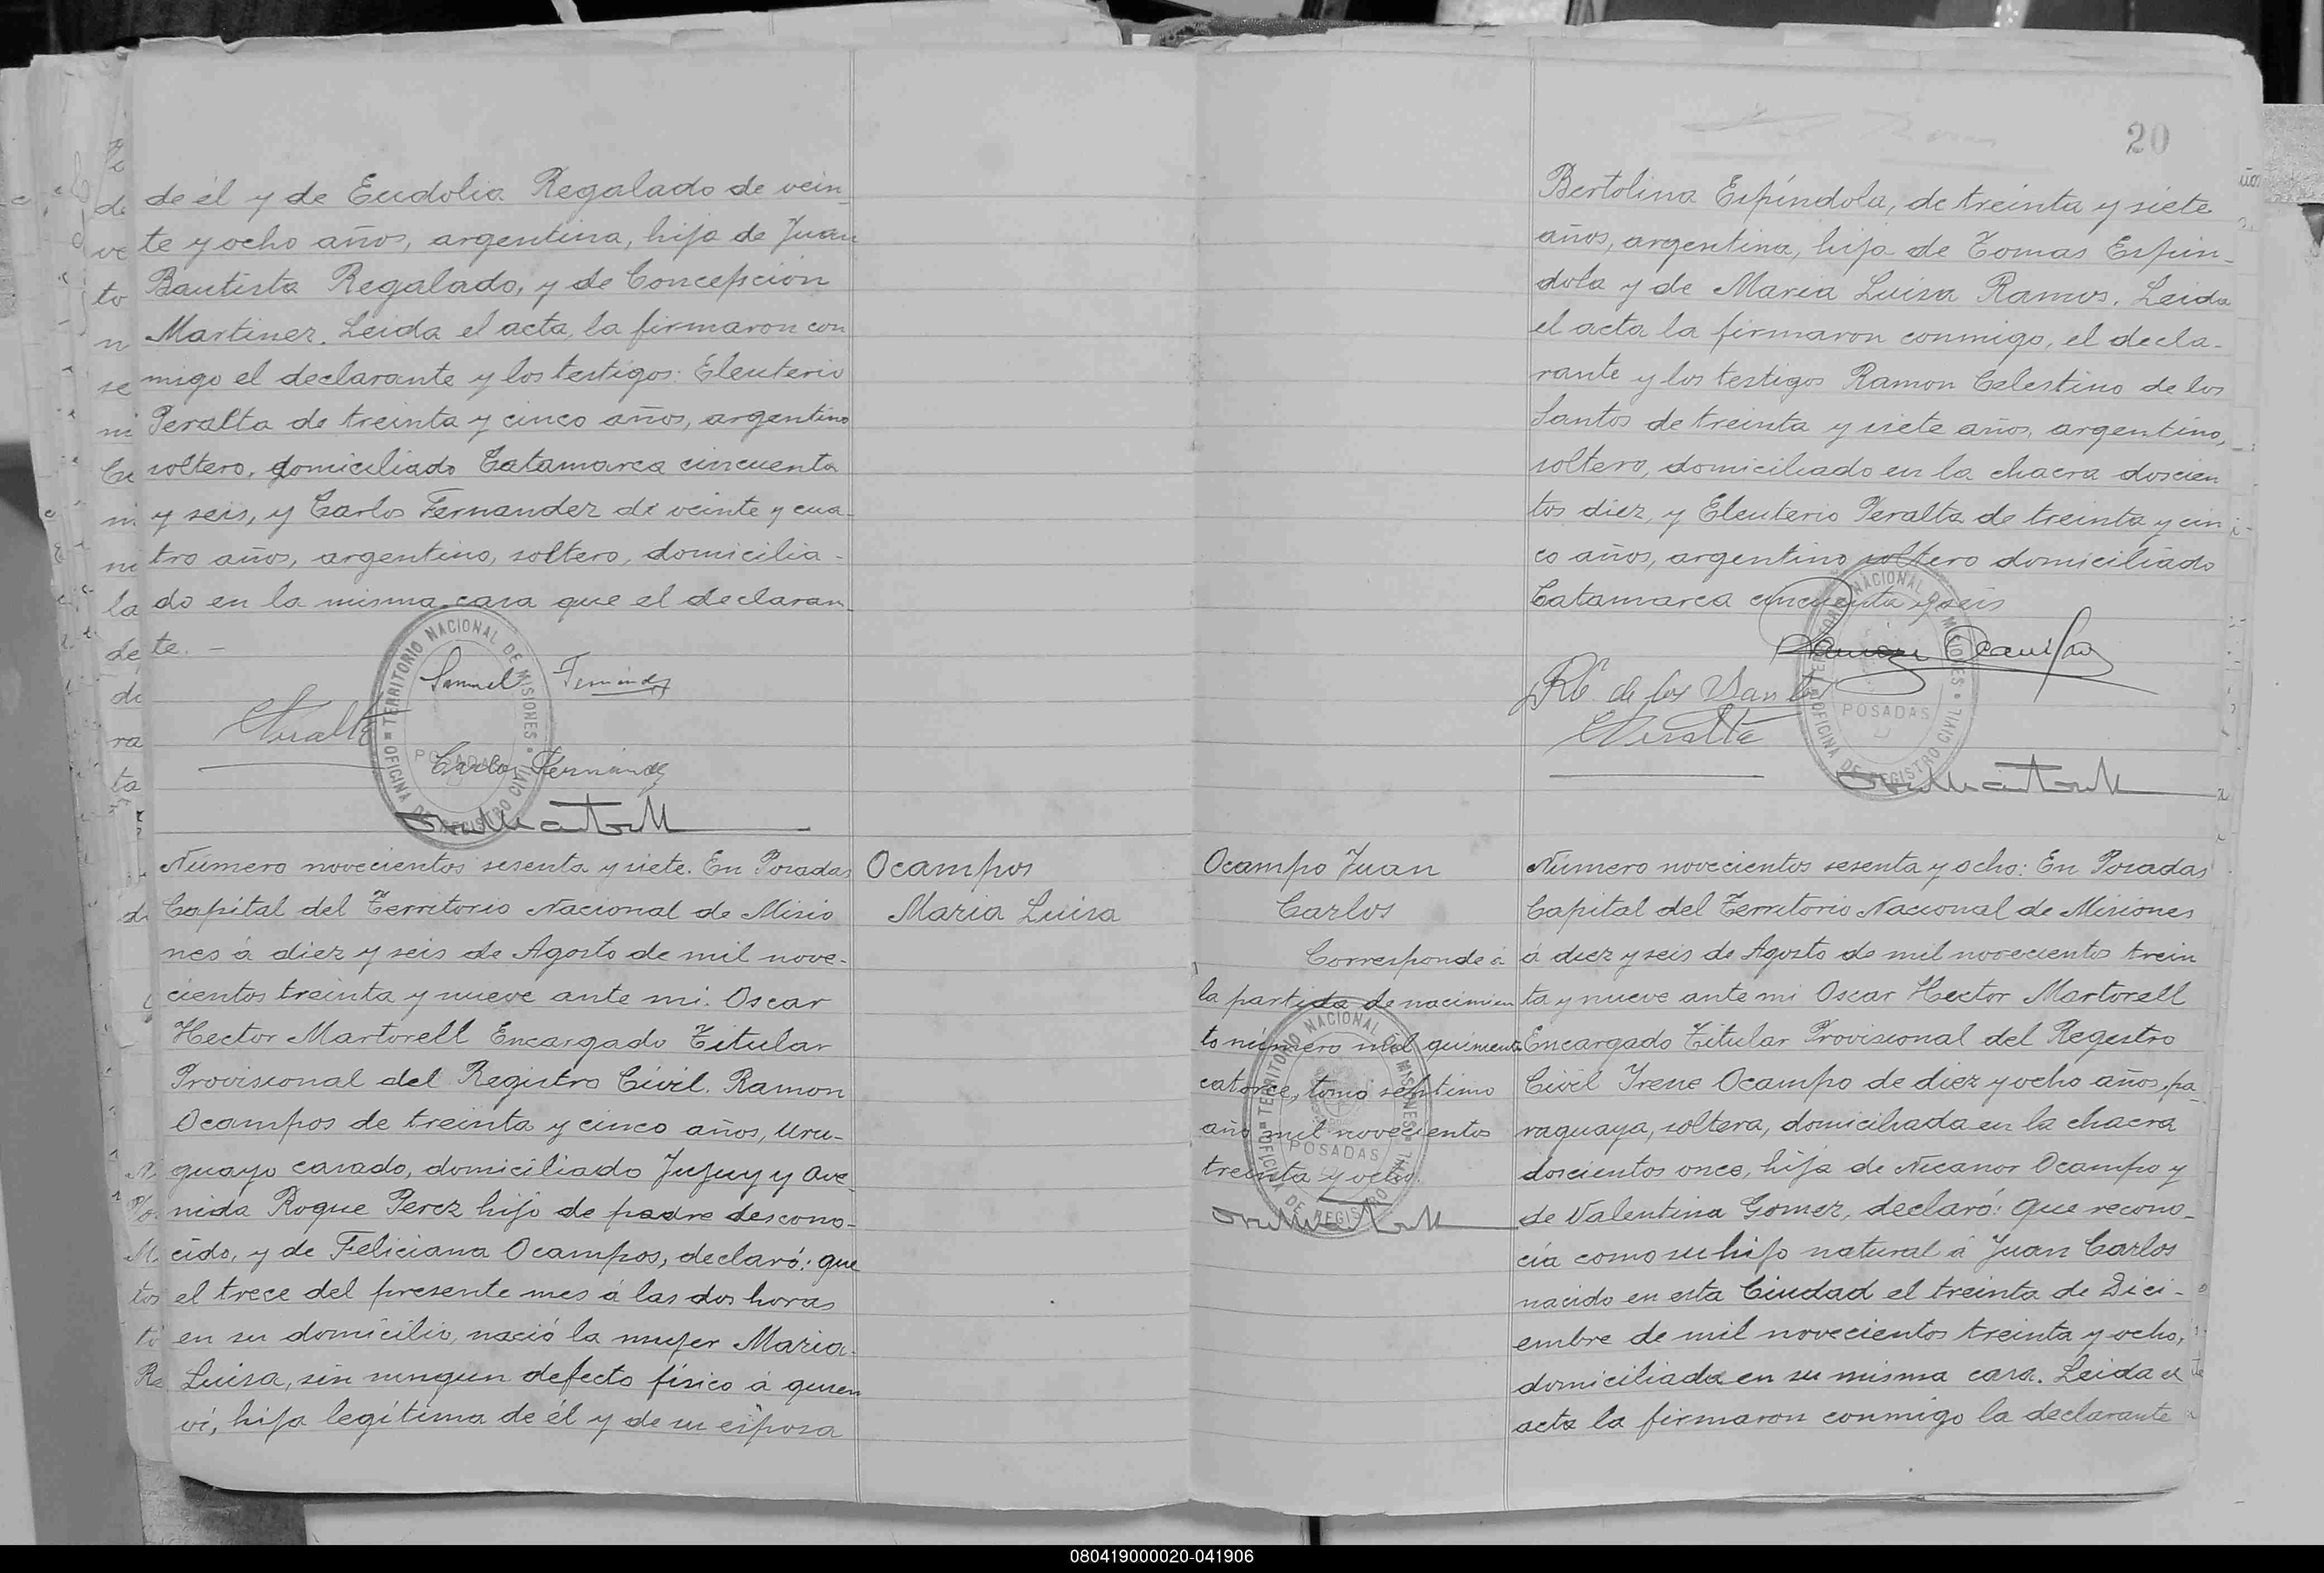 de él y de Eudolia Regalado de vein-
te y ocho años, argentina, hija de Juan
Bautista Regalado, y de Concepción
Martinez. Leida el acta, la firmaron con
migo el declarante y los testigos: Eleuterio
Peralta de treinta y cinco años, argentino
soltero, domiciliado Catamarca cincuenta
y seis, y Carlos Fernandez de veinte y cua-
tro años, argentino, soltero, domicilia-
do en la misma casa que el declaran-
te. -
Samuel
Peralta
Carlos Fernández
TERRITORIO NACIONAL DE MISIONES
POSADAS
OFICINA DE REGISTRO CIVIL
Número novecientos sesenta y siete. En Posadas
Capital del Territorio Nacional de Misio
nes á diez y seis de Agosto de mil nove-
cientos treinta y nueve ante mi. Oscar
Hector Martorell Encargado Titular
Provisional del Registro Civil. Ramon
Ocampos de treinta y cinco años, Uru-
guayo casado, domiciliado Jujuy y Ave-
nida Roque Perez hijo de padre descono-
cido, y de Feliciana Ocampos, declaró: que
el trece del presente mes á las dos horas
en su domicilio, nació la mujer Maria-
Luisa, sin ningun defecto físico á quien
ví, hija legítima de él y de su esposa
Ocampos
Maria Luisa
20
Bertolina Espíndola, de treinta y siete
años, argentina, hija de Tomas Espín-
dola y de Maria Luisa Ramos. Leida
el acta la firmaron conmigo, el decla-
rante y los testigos Ramon Celestino de los
Santos de treinta y siete años, argentino,
soltero, domiciliado en la chacra doscien
tos diez, y Eleuterio Peralta de treinta y cin
co años, argentino soltero domiciliado
Catamarca cincuenta y seis
Ramón Ocampos
RC de los Santos
Peralta
TERRITORIO NACIONAL DE MISIONES
POSADAS
OFICINA DE REGISTRO CIVIL
Ocampo Juan
Carlos
Corresponde á
la partida de nacimien
to número mil quinientos
catorce, tomo septimo
año mil novecientos
treinta y ocho.
TERRITORIO NACIONAL DE MISIONES
POSADAS
OFICINA DE REGISTRO CIVIL
Número novecientos sesenta y ocho: En Posadas
Capital del Territorio Nacional de Misiones
á diez y seis de Agosto de mil novecientos trein
ta y nueve ante mi Oscar Hector Martorell
Encargado Titular Provisional del Registro
Civil Irene Ocampo de diez y ocho años, pa-
raguaya, soltera, domiciliada en la chacra
doscientos once, hija de Nicanor Ocampo y
de Valentina Gomez, declaró: que recono-
cía como su hijo natural á Juan Carlos
nacido en esta Ciudad el treinta de Dici-
embre de mil novecientos treinta y ocho,
domiciliada en su misma casa. Leida el
acta la firmaron conmigo la declarante
080419000020-041906